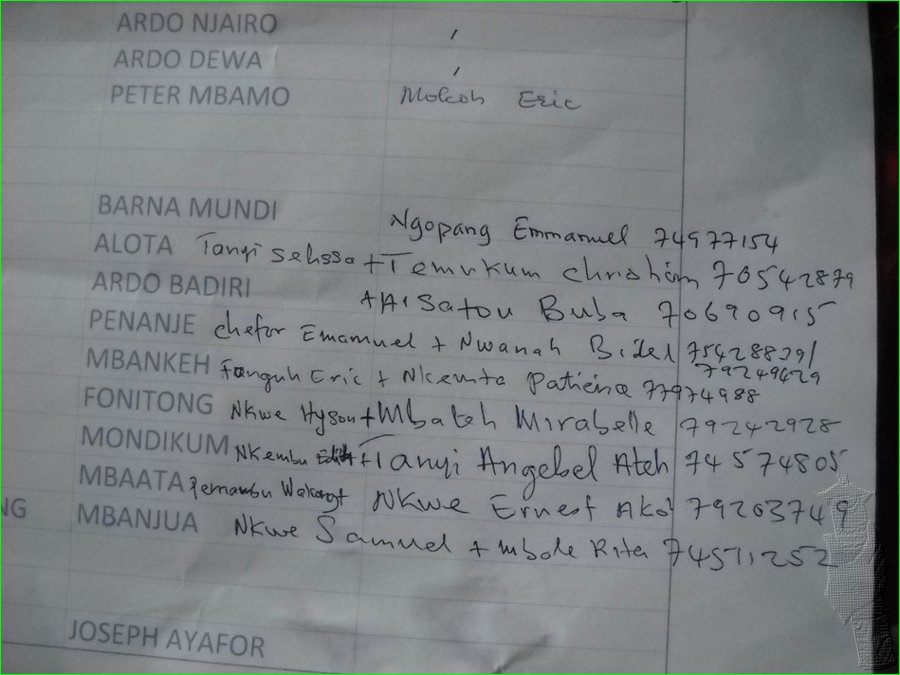 ARDO NJAIRO
ARDO DEWA
PETER MBAMO Mokom Eric
BARNA MUNDI Ngopang Emmanuel 74977154
ALOTA Tanyi Selissa + Temukum Christian 70542879
ARDO BADIRI + Aisatou Buba 70690915
PENANJE Chefor Emamuel + Nwanah Bidel 75428839/
79249629
MBANKEH Fonguh Eric + Nkemta Patience 77974988
FONITONG Nkwe Hyson + Mbateh Mirabelle 79242928
MONDIKUM Nkembu + Tanyi Angebel Ateh 74574805
MBAATA Nkwe Ernest Ako 79203749
NG MBANJUA Nkwe Samuel + Mbole Rita 74511252
JOSEPH AYAFOR